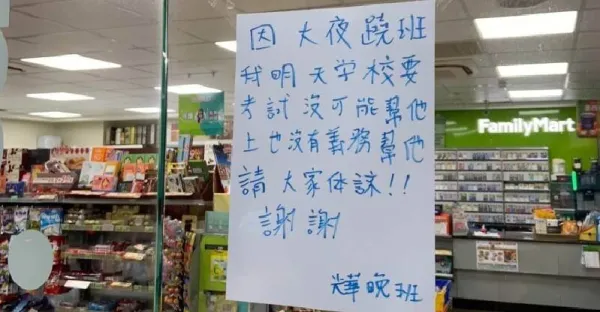 因 大夜蹺班
我明天学校要
考試沒可能幫他
上也沒有義務幫他
請大家体諒!!
謝謝
小華晚班
FamilyMart